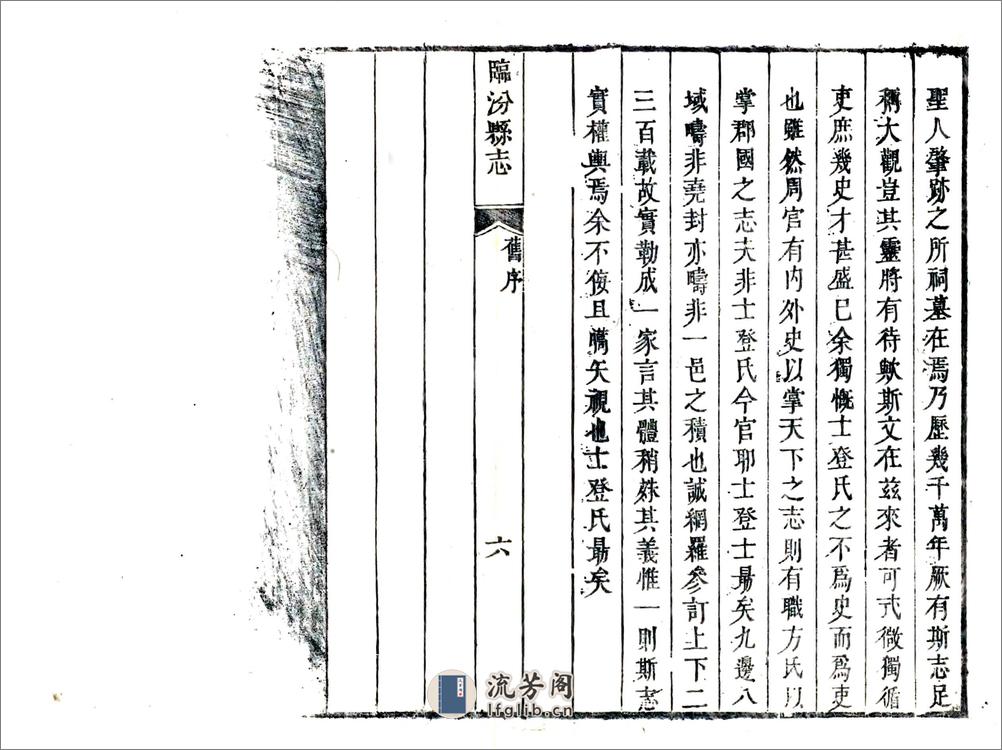 聖人肇跡之所祠墓在焉乃歷幾千萬年厥有斯志足
稱大觀豈其靈將有待歟斯文在茲來者可式微獨循
吏庶幾史才甚盛已余獨慨士登氏之不為史而為吏
也雖然周官有內外史以掌天下之志則有職方氏以
掌郡國之志夫非士登氏今官耶士登士勗矣九邊八
域疇非堯封亦疇非一邑之積也誠網羅參訂上下二
三百載故實勒成一家言其體稍殊其義惟一則斯志
實權輿焉余不佞且黱矢視也士登氏勗矣
臨汾縣志
舊序
六
流芳阁
lfglib.cn